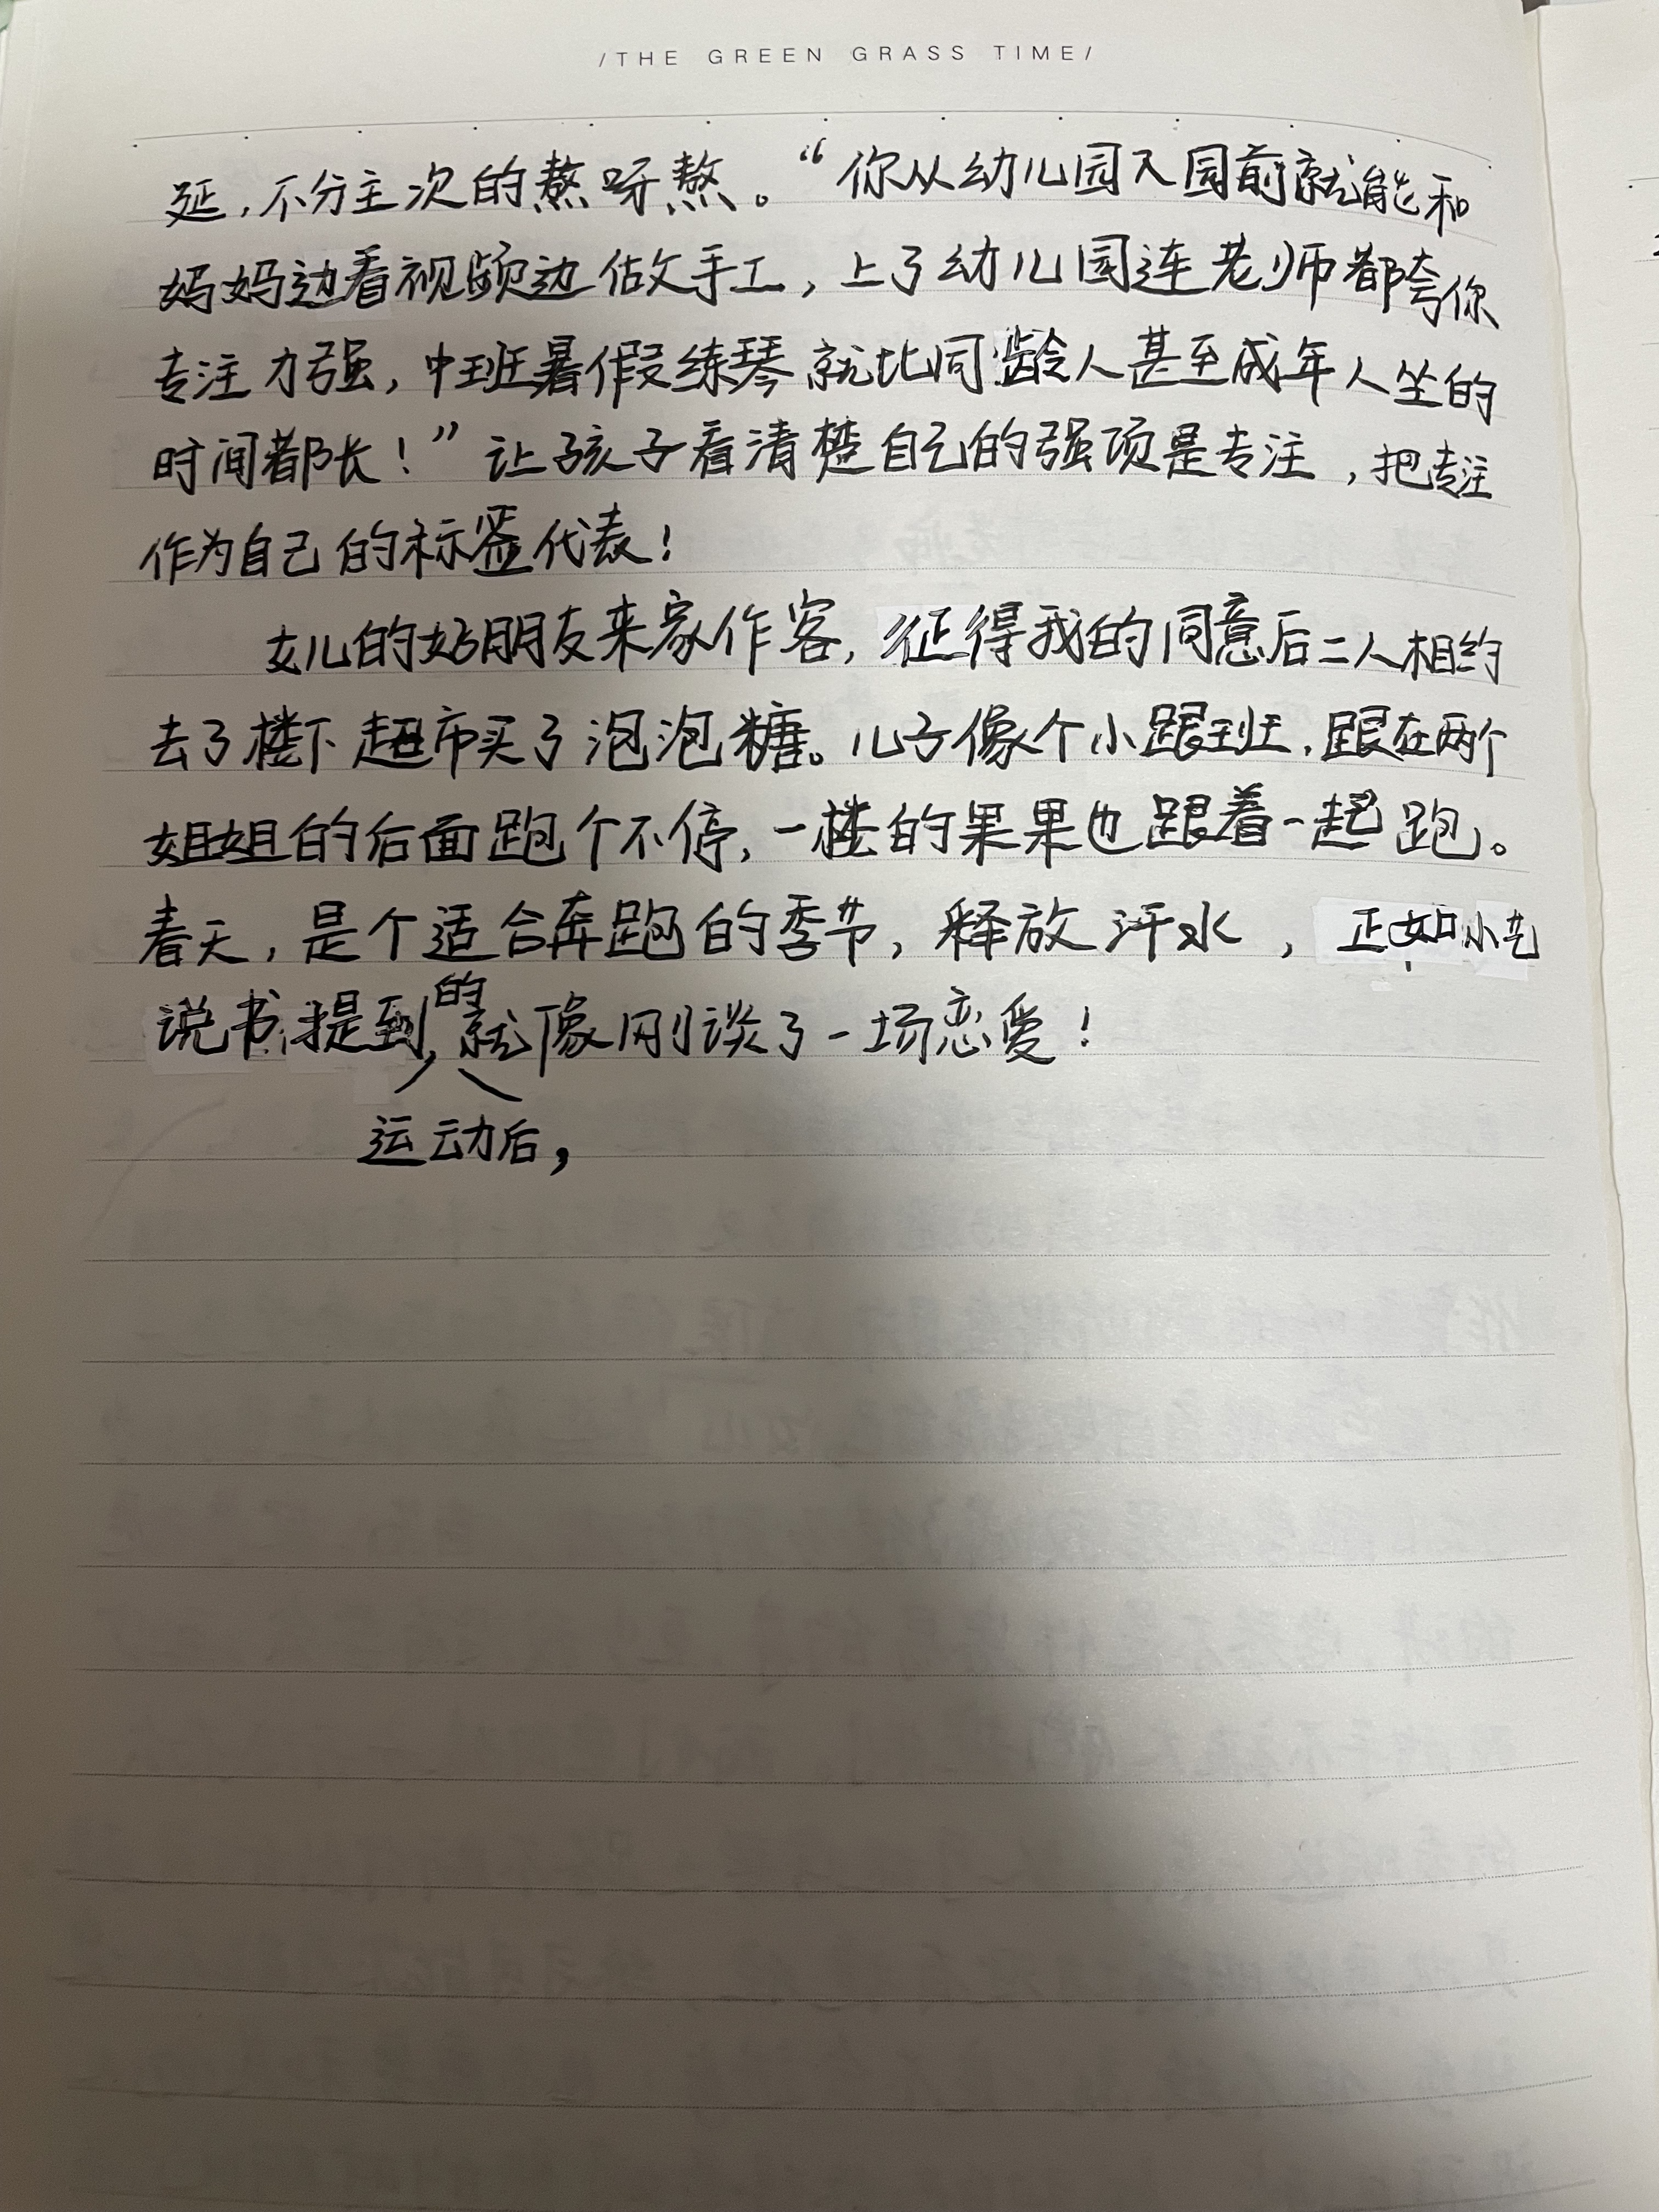 /THE GREEN GRASS TIME/
延,不分主次的熬呀熬。“你从幼儿园入园前就能和
妈妈边看视频边做手工,上了幼儿园连老师都夸你
专注力强,中班暑假练琴就比同龄人甚至成年人坐的
时间都长!”让孩子看清楚自己的强项是专注,把专注
作为自己的标签代表!
女儿的好朋友来家作客,征得我的同意后二人相约
去了楼下超市买了泡泡糖。儿子像个小跟班,跟在两个
姐姐的后面跑个不停,一楼的果果也跟着一起跑。
春天,是个适合奔跑的季节,释放汗水,正如小艺
说书提到的
就像刚谈了一场恋爱!
运动后,